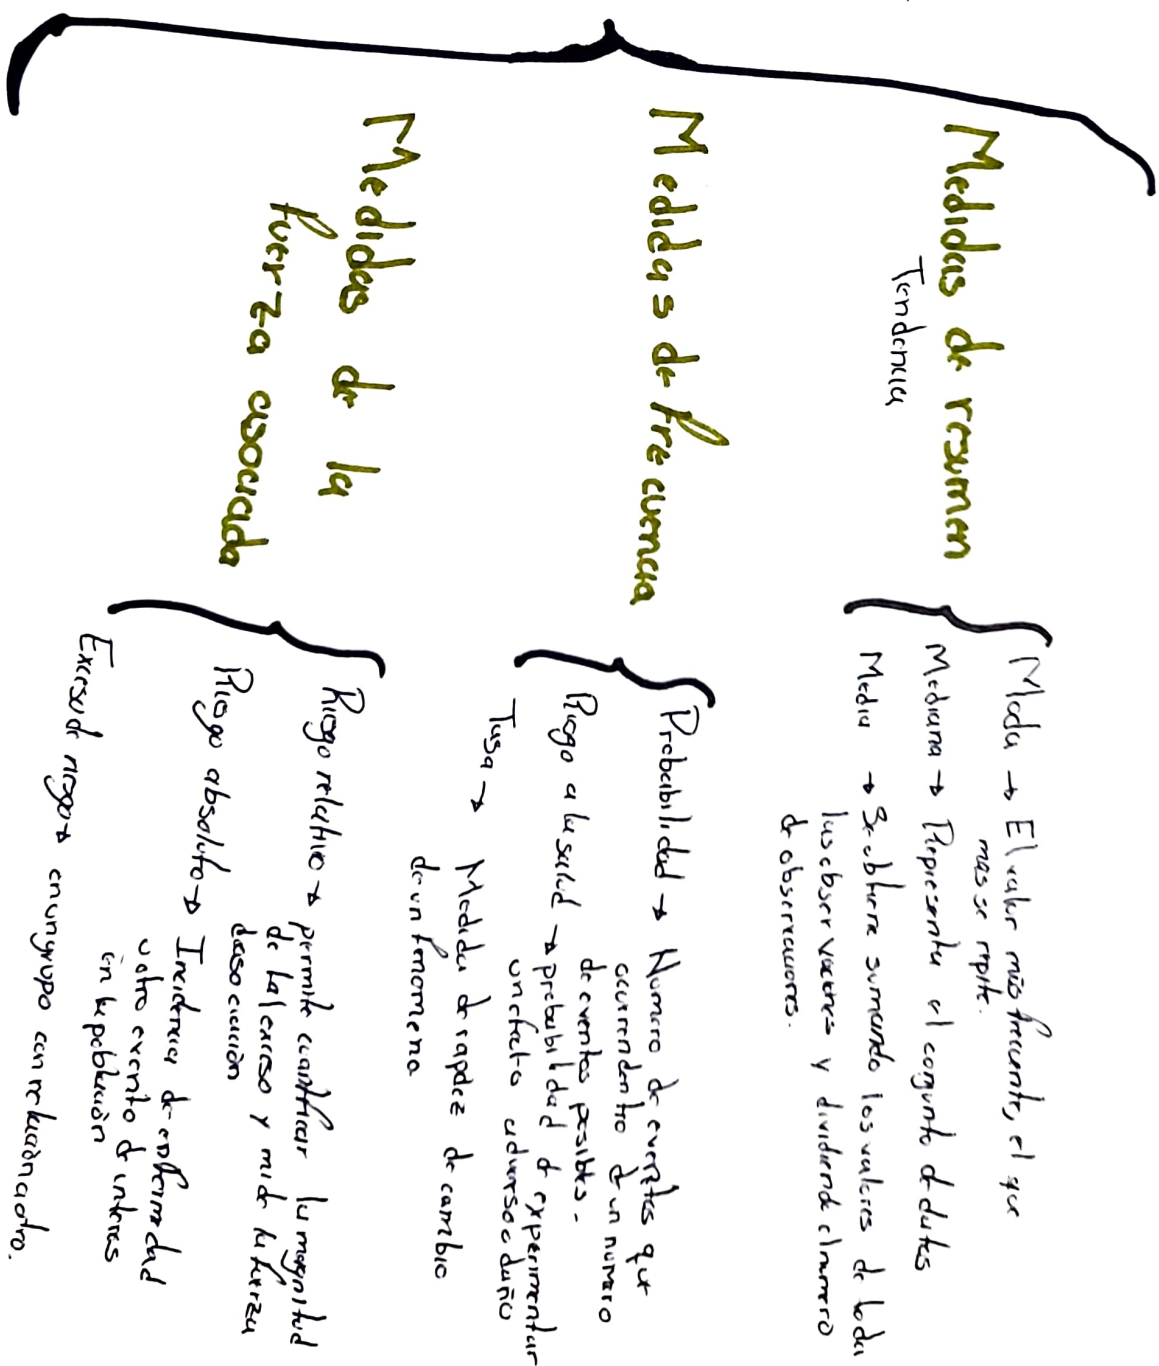 Medidas de resumen
Tendencia
Moda → El valor más frecuente, el que
mas se repite.
Mediana → Representa el conjunto de datos
Media → Se obtiene sumando los valores de toda
las observaciones y dividiendo el numero
de observaciones.
Medidas de frecuencia
Probabilidad → Numero de eventos que
ocurren dentro de un numero
de eventos posibles.
Riesgo a la salud → probabilidad de experimentar
un efecto adverso o daño
Tasa → Medida de rapidez de cambio
de un fenomeno
Medidas de la
fuerza asociada
Riesgo relativo → permite cuantificar la magnitud
de tal exceso y mide la fuerza
de asociación
Riesgo absoluto → Incidencia de enfermedad
u otro evento de interes
en la población
Exceso de riesgo → en un grupo con relación a otro.